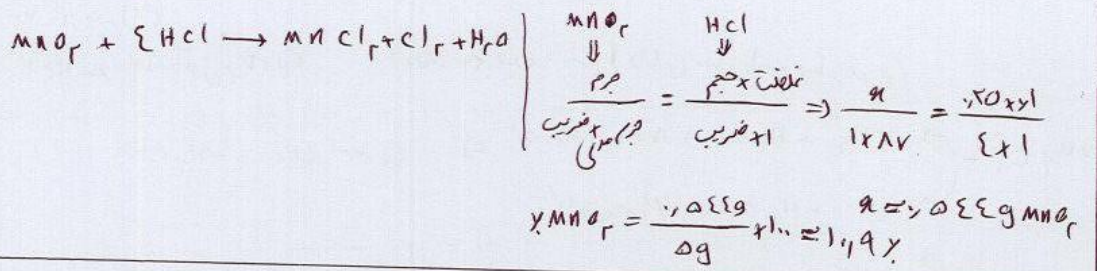 MnO۲ + ۴HCl → MnCl۲ + Cl۲ + H۲O
MnO۲ HCl
⇓ ⇓
جرم / جرم مولی × ضریب = غلظت × حجم / ۱ × ضریب ⇒ x / ۱×۸۷ =
x ≃ ۰٫۵۴۴g MnO۲
% MnO۲ = ۰٫۵۴۴g / ۵g × ۱۰۰ ≃ ۱۰٫۹ %